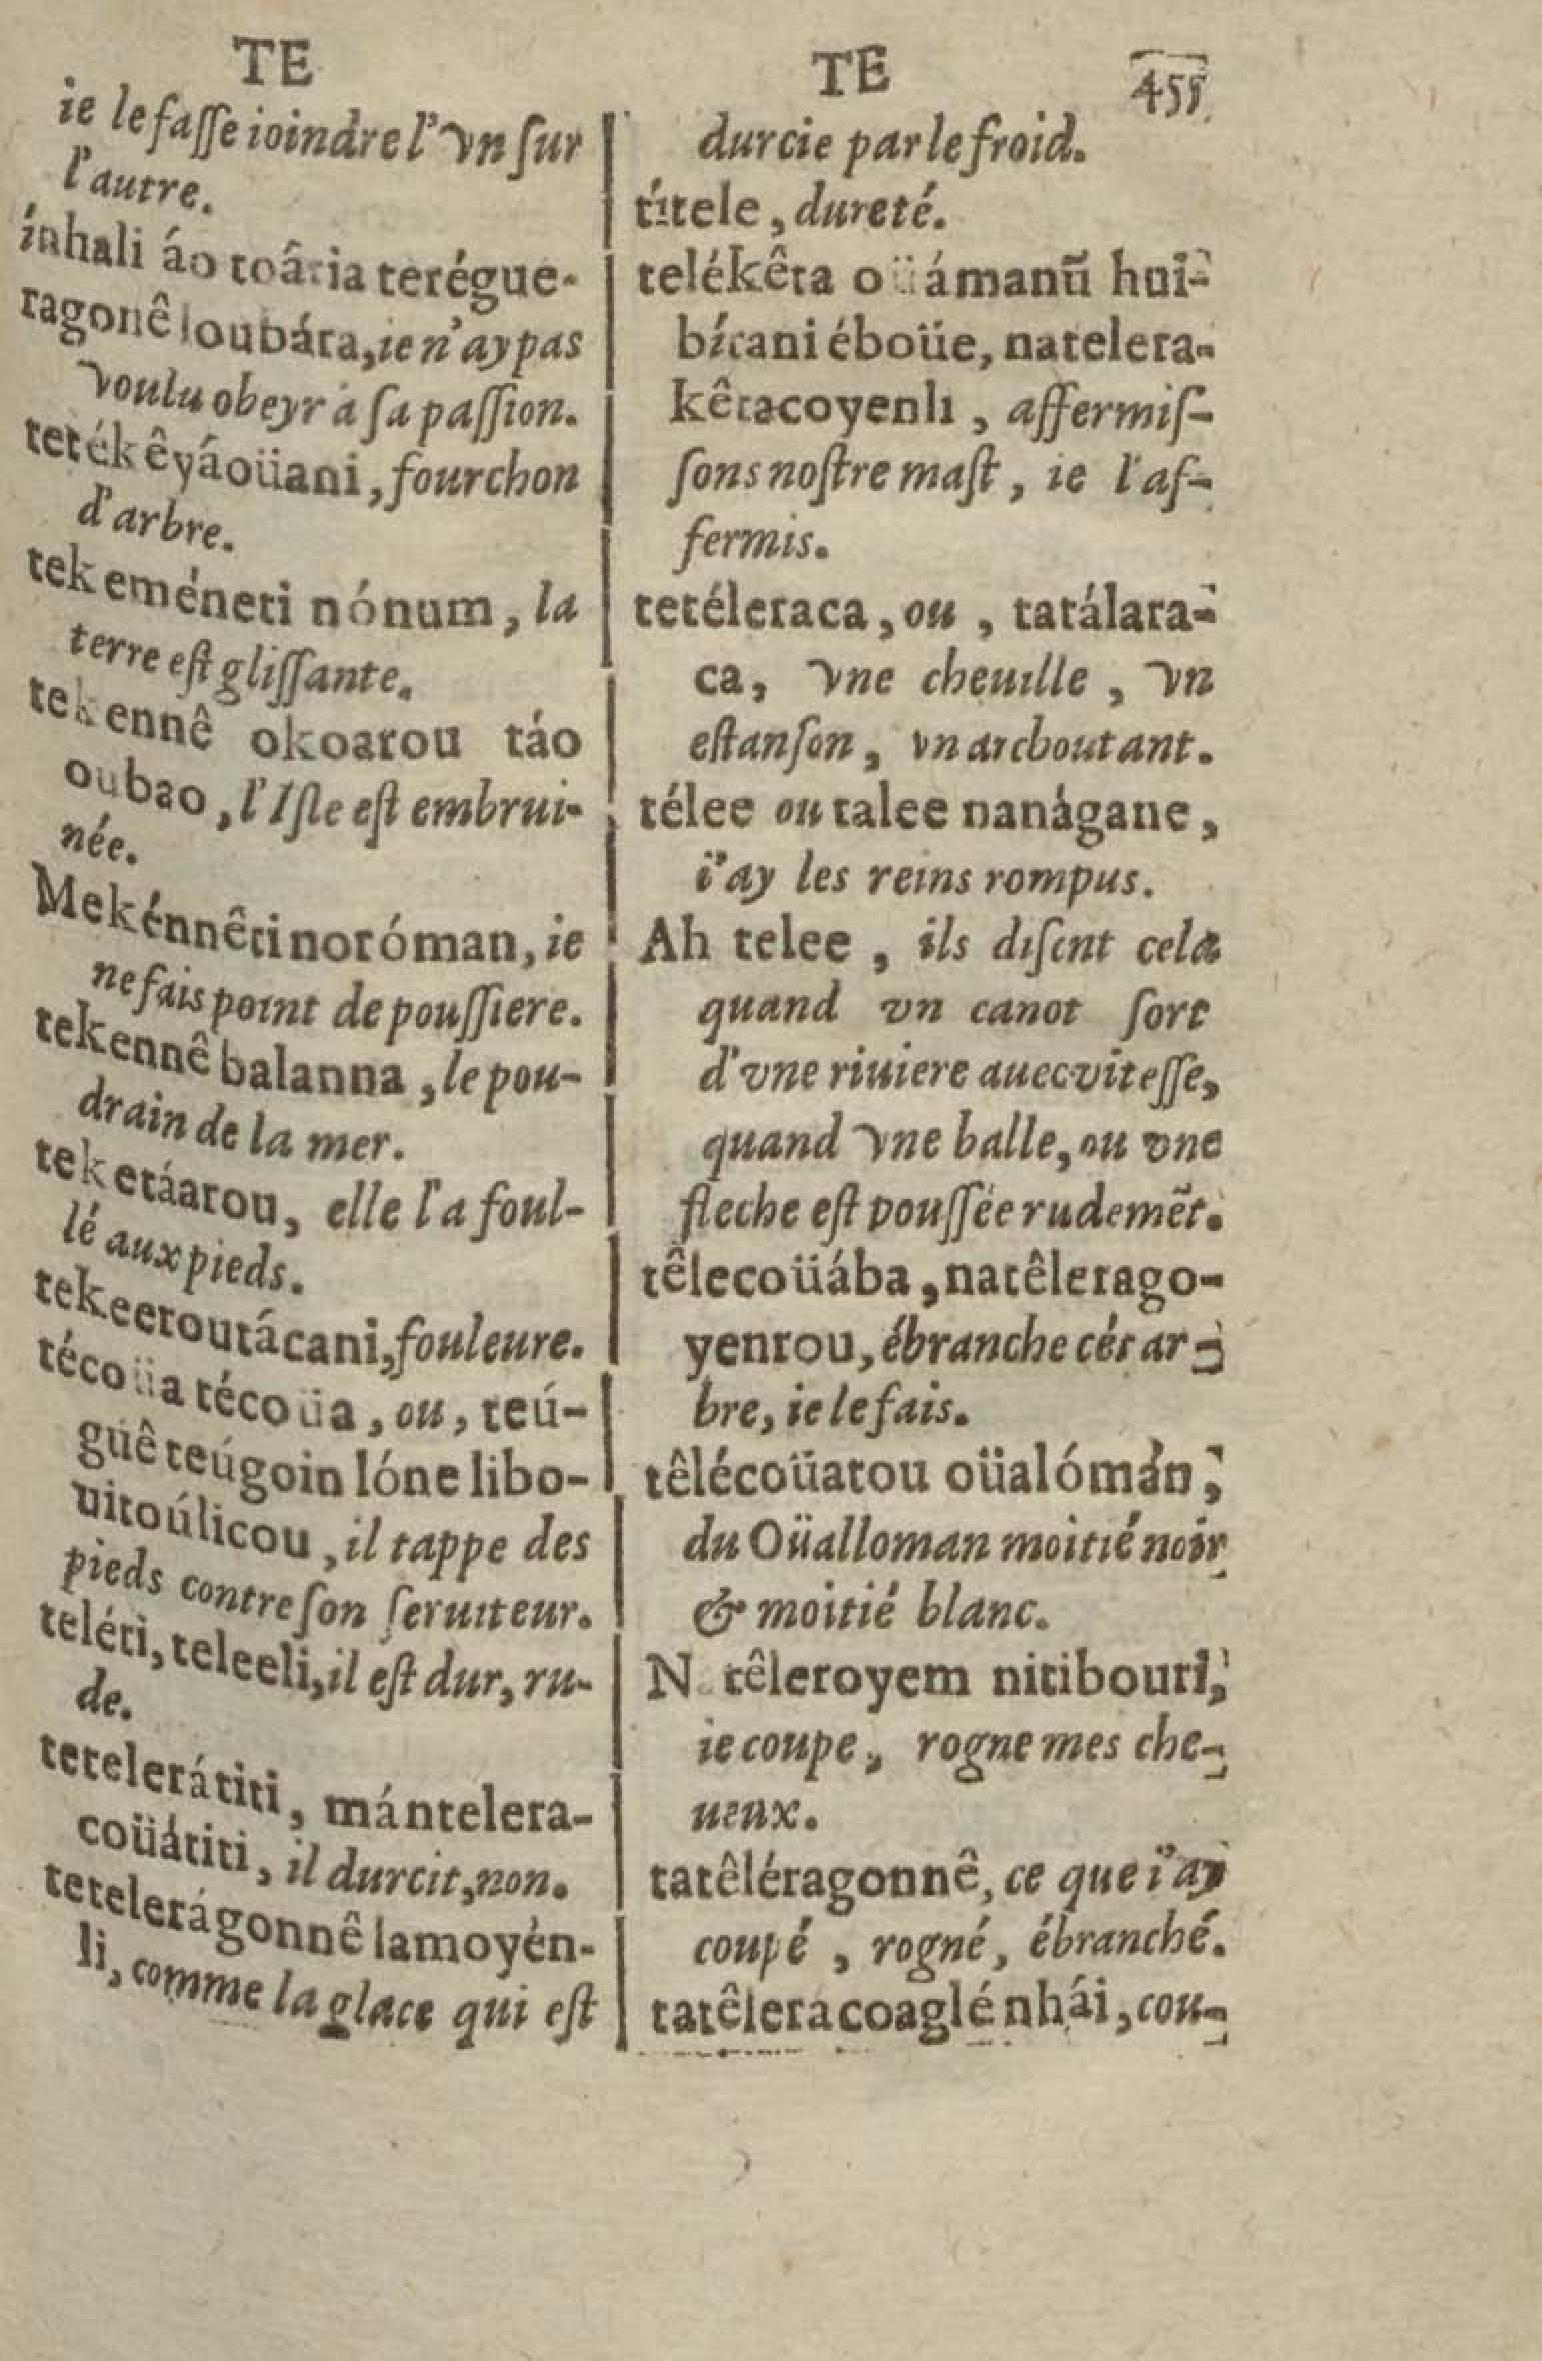 TE
ie le faſſe ioindre l'vn ſur
l'autre.
ínhali áo toâtia terégue-
ragonê loubára, ie n'ay pas
voulu obeyr á ſa paſſion.
tetékêyáoüani, fourchon
d'arbre.
tekeméneti nónum, la
terre eſt gliſſante.
tekennê okoarou táo
oubao, l'Iſle eſt embrui-
née.
Mekénnêti noróman, ie
ne fais point de pouſſiere.
tekennê balanna, le pou-
drain de la mer.
teketáarou, elle l'a foul-
lé aux pieds.
tekeeroutácani, fouleure.
técoüa técoüa, ou, teú-
guê teúgoin lóne libo-
uitoúlicou, il tappe des
pieds contre ſon ſeruiteur.
teléti, teleeli, il eſt dur, ru-
de.
tetelerátiti, mántelera-
coüátiti, il durcit, non.
tetelerágonnê lamoyèn-
li, comme la glace qui eſt
TE
455
durcie par le froid.
títele, dureté.
telékêta oüámanũ hui-
bítani éboüe, natelera-
kêtacoyenli, affermiſ-
ſons noſtre maſt, ie l'af-
fermis.
tetéleraca, ou, tatálara-
ca, vne cheuille, vn
eſtanſon, vn arcboutant.
télee ou talee nanágane,
i'ay les reins rompus.
Ah telee, ils diſent cela
quand vn canot ſort
d'vne riuiere auec viteſſe,
quand vne balle, ou vne
fleche eſt pouſſée rudemẽt.
têlecoüába, natêlerago-
yenrou, ébranche cét ar-
bre, ie le fais.
têlécoüatou oüalómán,
du Oüalloman moitié noir
& moitié blanc.
N têleroyem nitibouri,
ie coupe, rogne mes che-
ueux.
tatêléragonnê, ce que i'ay
coupé, rogné, ébranché.
tatêleracoaglé nhái, cou-